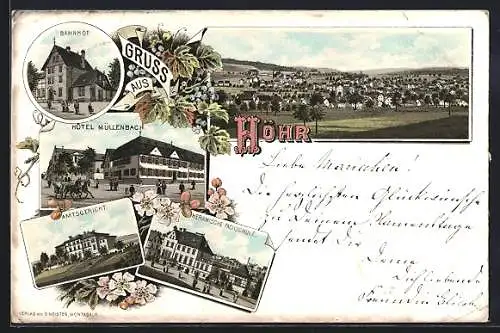 BAHNHOF
GRUSS
AUS
HÖHR
HÔTEL MÜLLENBACH
AMTSGERICHT.
KERAMISCHE FACHSCHULE.
Liebe Mariechen!
Die herzlichsten Glückwünsche
zu Deinem Namenstage
sendet Dir
Deine
Dichliebende
Freundin